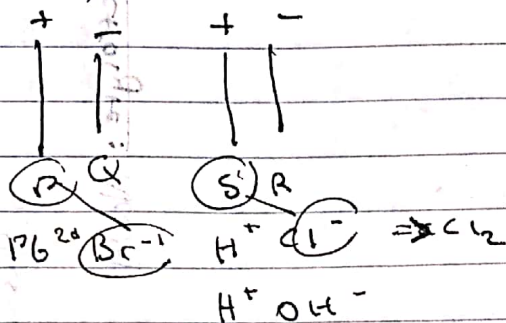 + − + −
P Q S R
Pb²⁺ Br⁻¹ H⁺ Cl⁻ ⇒ Cl₂
H⁺ OH⁻